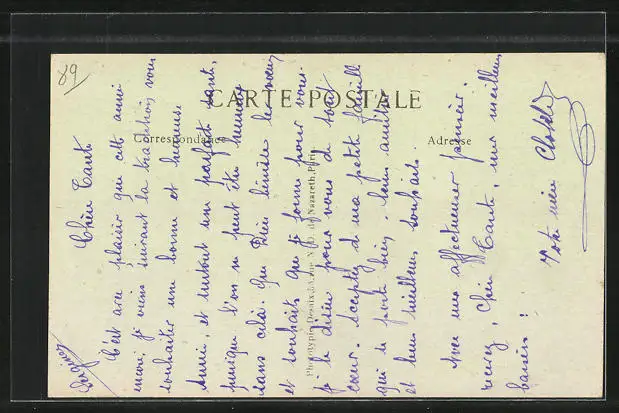 89
CARTE POSTALE
Correspondance
Adresse
Phototypie Desaix, Nazareth, Paris
Chère Tante
C'est avec plaisir que cette année
encore, je viens suivant la tradition vous
souhaiter une bonne et heureuse
Année, et surtout une parfaite santé,
puisque l'on ne peut être heureux
sans cela. Que Dieu bénisse les vœux
et souhaits que je forme pour vous
je le désire pour vous de tout
cœur. Acceptez de ma petite famille
qui se porte bien, leurs amitiés
et leurs meilleurs souhaits.
Avec mes affectueuses pensées,
recevez, Chère Tante, mes meilleurs
baisers!
Votre nièce